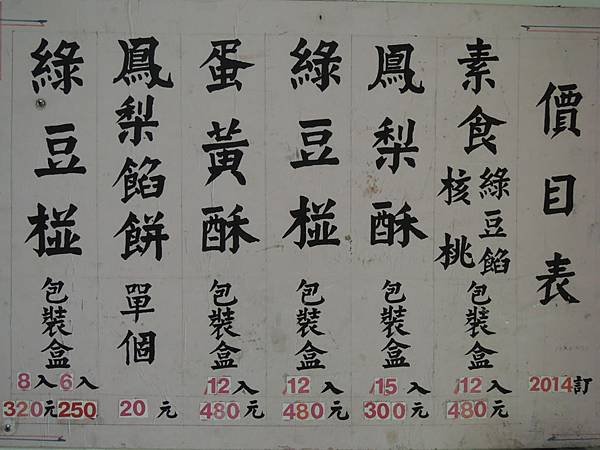 價目表
2014訂
素食綠豆餡核桃
包裝盒
12入
480元
鳳梨酥
包裝盒
15入
300元
綠豆椪
包裝盒
12入
480元
蛋黃酥
包裝盒
12入
480元
鳳梨餡餅
單個
20元
綠豆椪
包裝盒
8入6入
320元250